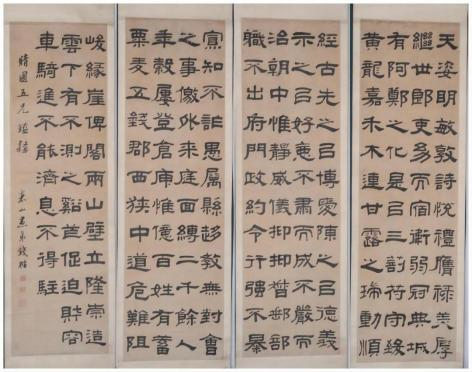 天姿明敏敦詩悅禮膺祿美厚
繼世郎吏幼而宿衛弱冠典城
有阿鄭之化是㠯三剖符守致
黃龍嘉禾木連甘露之瑞動順
經古先之㠯博愛陳之㠯德義
示之㠯好惡不肅而成不嚴而
治朝中惟靜威儀抑抑督郵部
職不出府門政約令行強不暴
寡知不詐愚屬縣趨教無對會
之事徼外來庭面縛二千餘人
年穀屢登倉庾惟億百姓有蓄
粟麥五錢郡西狹中道危難阻
峻緣崖俾閣兩山壁立隆崇造
雲下有不測之谿促迫財容
車騎進不能濟息不得駐
園五兄
山愚弟錢